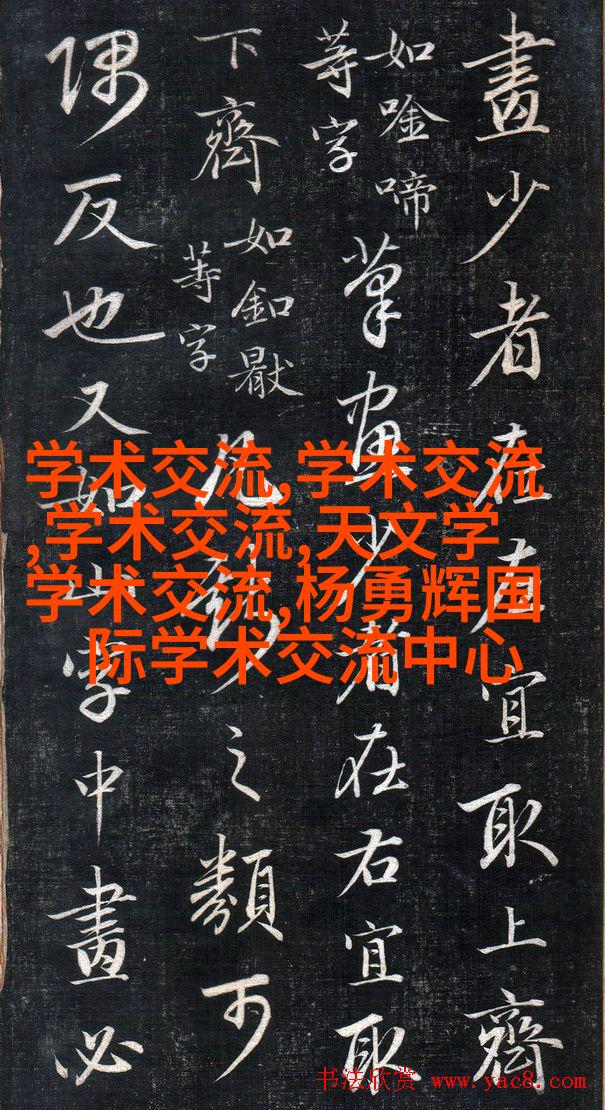 畫少者在左宜取上齊
如唫啼
等字
筆畫少者在右宜取
下齊
如釦
等字
之類可
隅反也又如山字中畫必
学术交流,学术交流
,学术交流,天文学
学术交流,杨勇辉国
际学术交流中心
书法欣赏 www.yac8.com